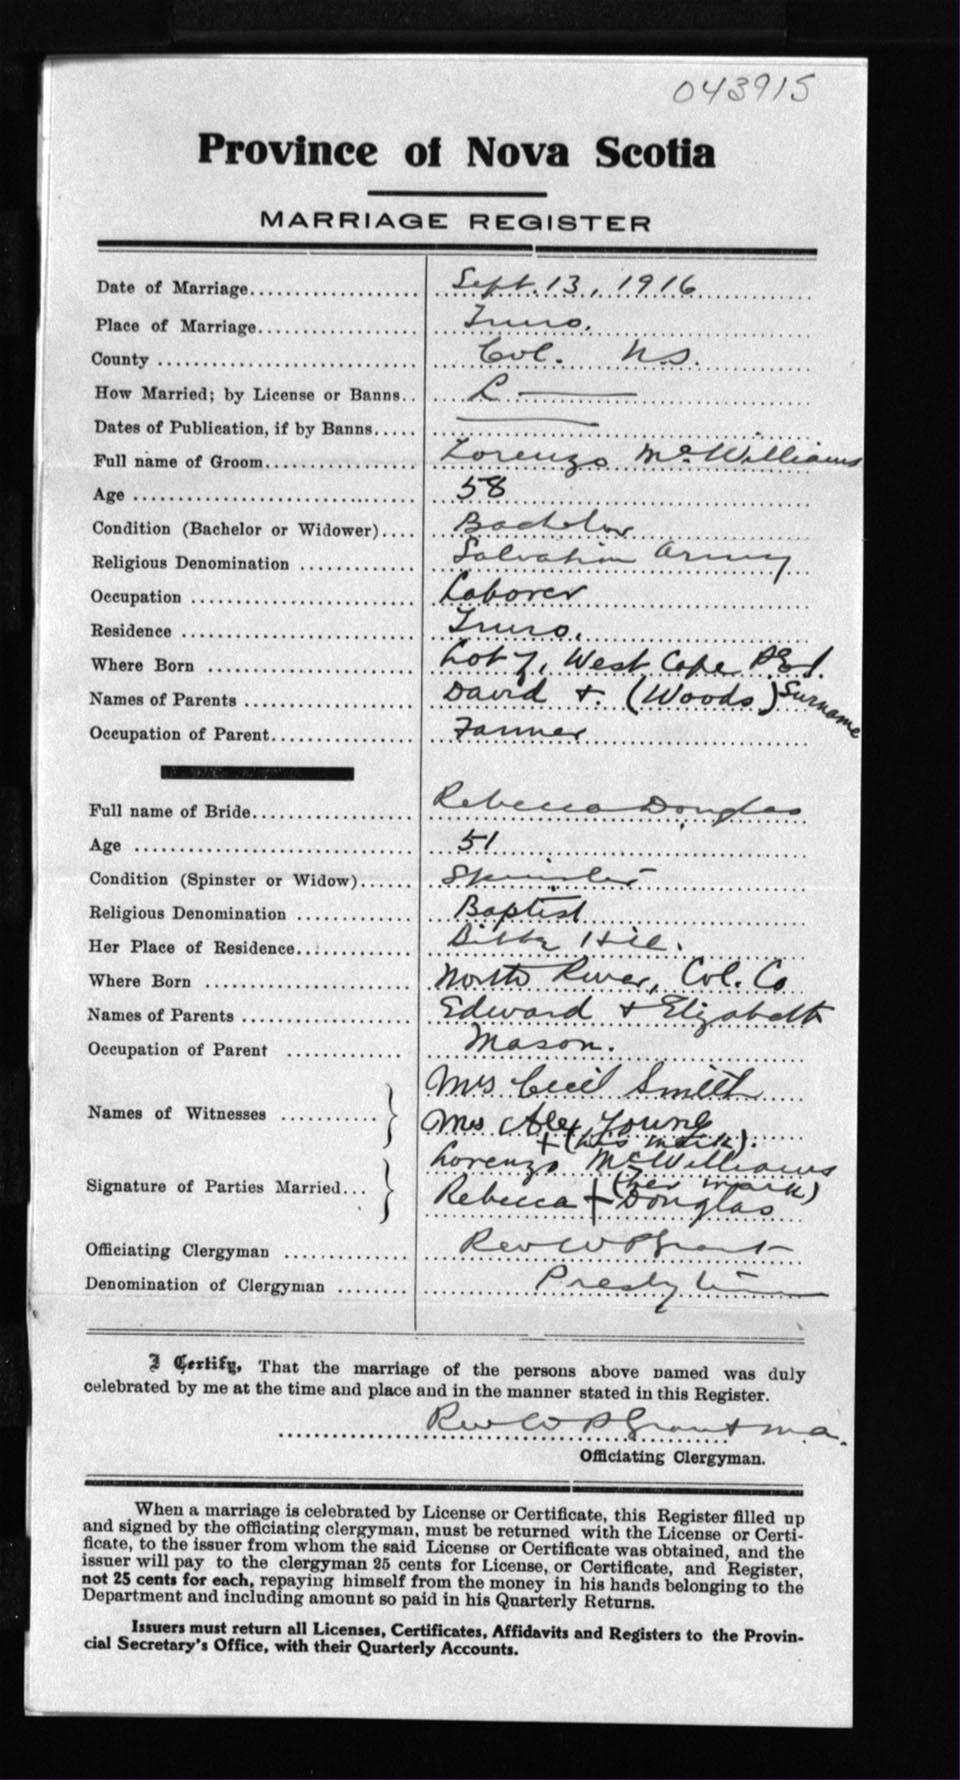 043915
Province of Nova Scotia
MARRIAGE REGISTER
Date of Marriage.................... Sept. 13, 1916
Place of Marriage.................. Truro.
County ............................. Col. N.S.
How Married; by License or Banns.. L
Dates of Publication, if by Banns.....
Full name of Groom................. Lorenzo McWilliams
Age ................................ 58
Condition (Bachelor or Widower).... Bachelor
Religious Denomination ............. Salvation Army
Occupation ......................... Laborer
Residence .......................... Truro.
Where Born ........................ Lot 7, West Cape P.E.I.
Names of Parents .................... David & (Woods) Surname
Occupation of Parent................. Farmer
Full name of Bride................... Rebecca Douglas
Age ................................ 51
Condition (Spinster or Widow)...... Spinster
Religious Denomination ............. Baptist
Her Place of Residence.............. Bible Hill.
Where Born ........................ North River, Col. Co
Names of Parents .................... Edward & Elizabeth
Occupation of Parent ............... Mason.
Names of Witnesses ............ } Mrs Cecil Smith
Mrs Alex Young
+ (his mark).
Signature of Parties Married... } Lorenzo McWilliams
(her mark)
Rebecca + Douglas
Officiating Clergyman ............... Rev W P Grant
Denomination of Clergyman ........ Presbyterian
I Certify, That the marriage of the persons above named was duly
celebrated by me at the time and place and in the manner stated in this Register.
Rev W P Grant M.A.
Officiating Clergyman.
When a marriage is celebrated by License or Certificate, this Register filled up
and signed by the officiating clergyman, must be returned with the License or Certi-
ficate, to the issuer from whom the said License or Certificate was obtained, and the
issuer will pay to the clergyman 25 cents for License, or Certificate, and Register,
not 25 cents for each, repaying himself from the money in his hands belonging to the
Department and including amount so paid in his Quarterly Returns.
Issuers must return all Licenses, Certificates, Affidavits and Registers to the Provin-
cial Secretary's Office, with their Quarterly Accounts.